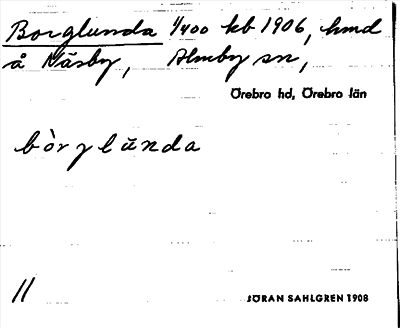 Borglunda 1/400 kb 1906, hmd
å Näsby, Almby sn,
Örebro hd, Örebro län
bòrglu̇nda
11
JÖRAN SAHLGREN 1908